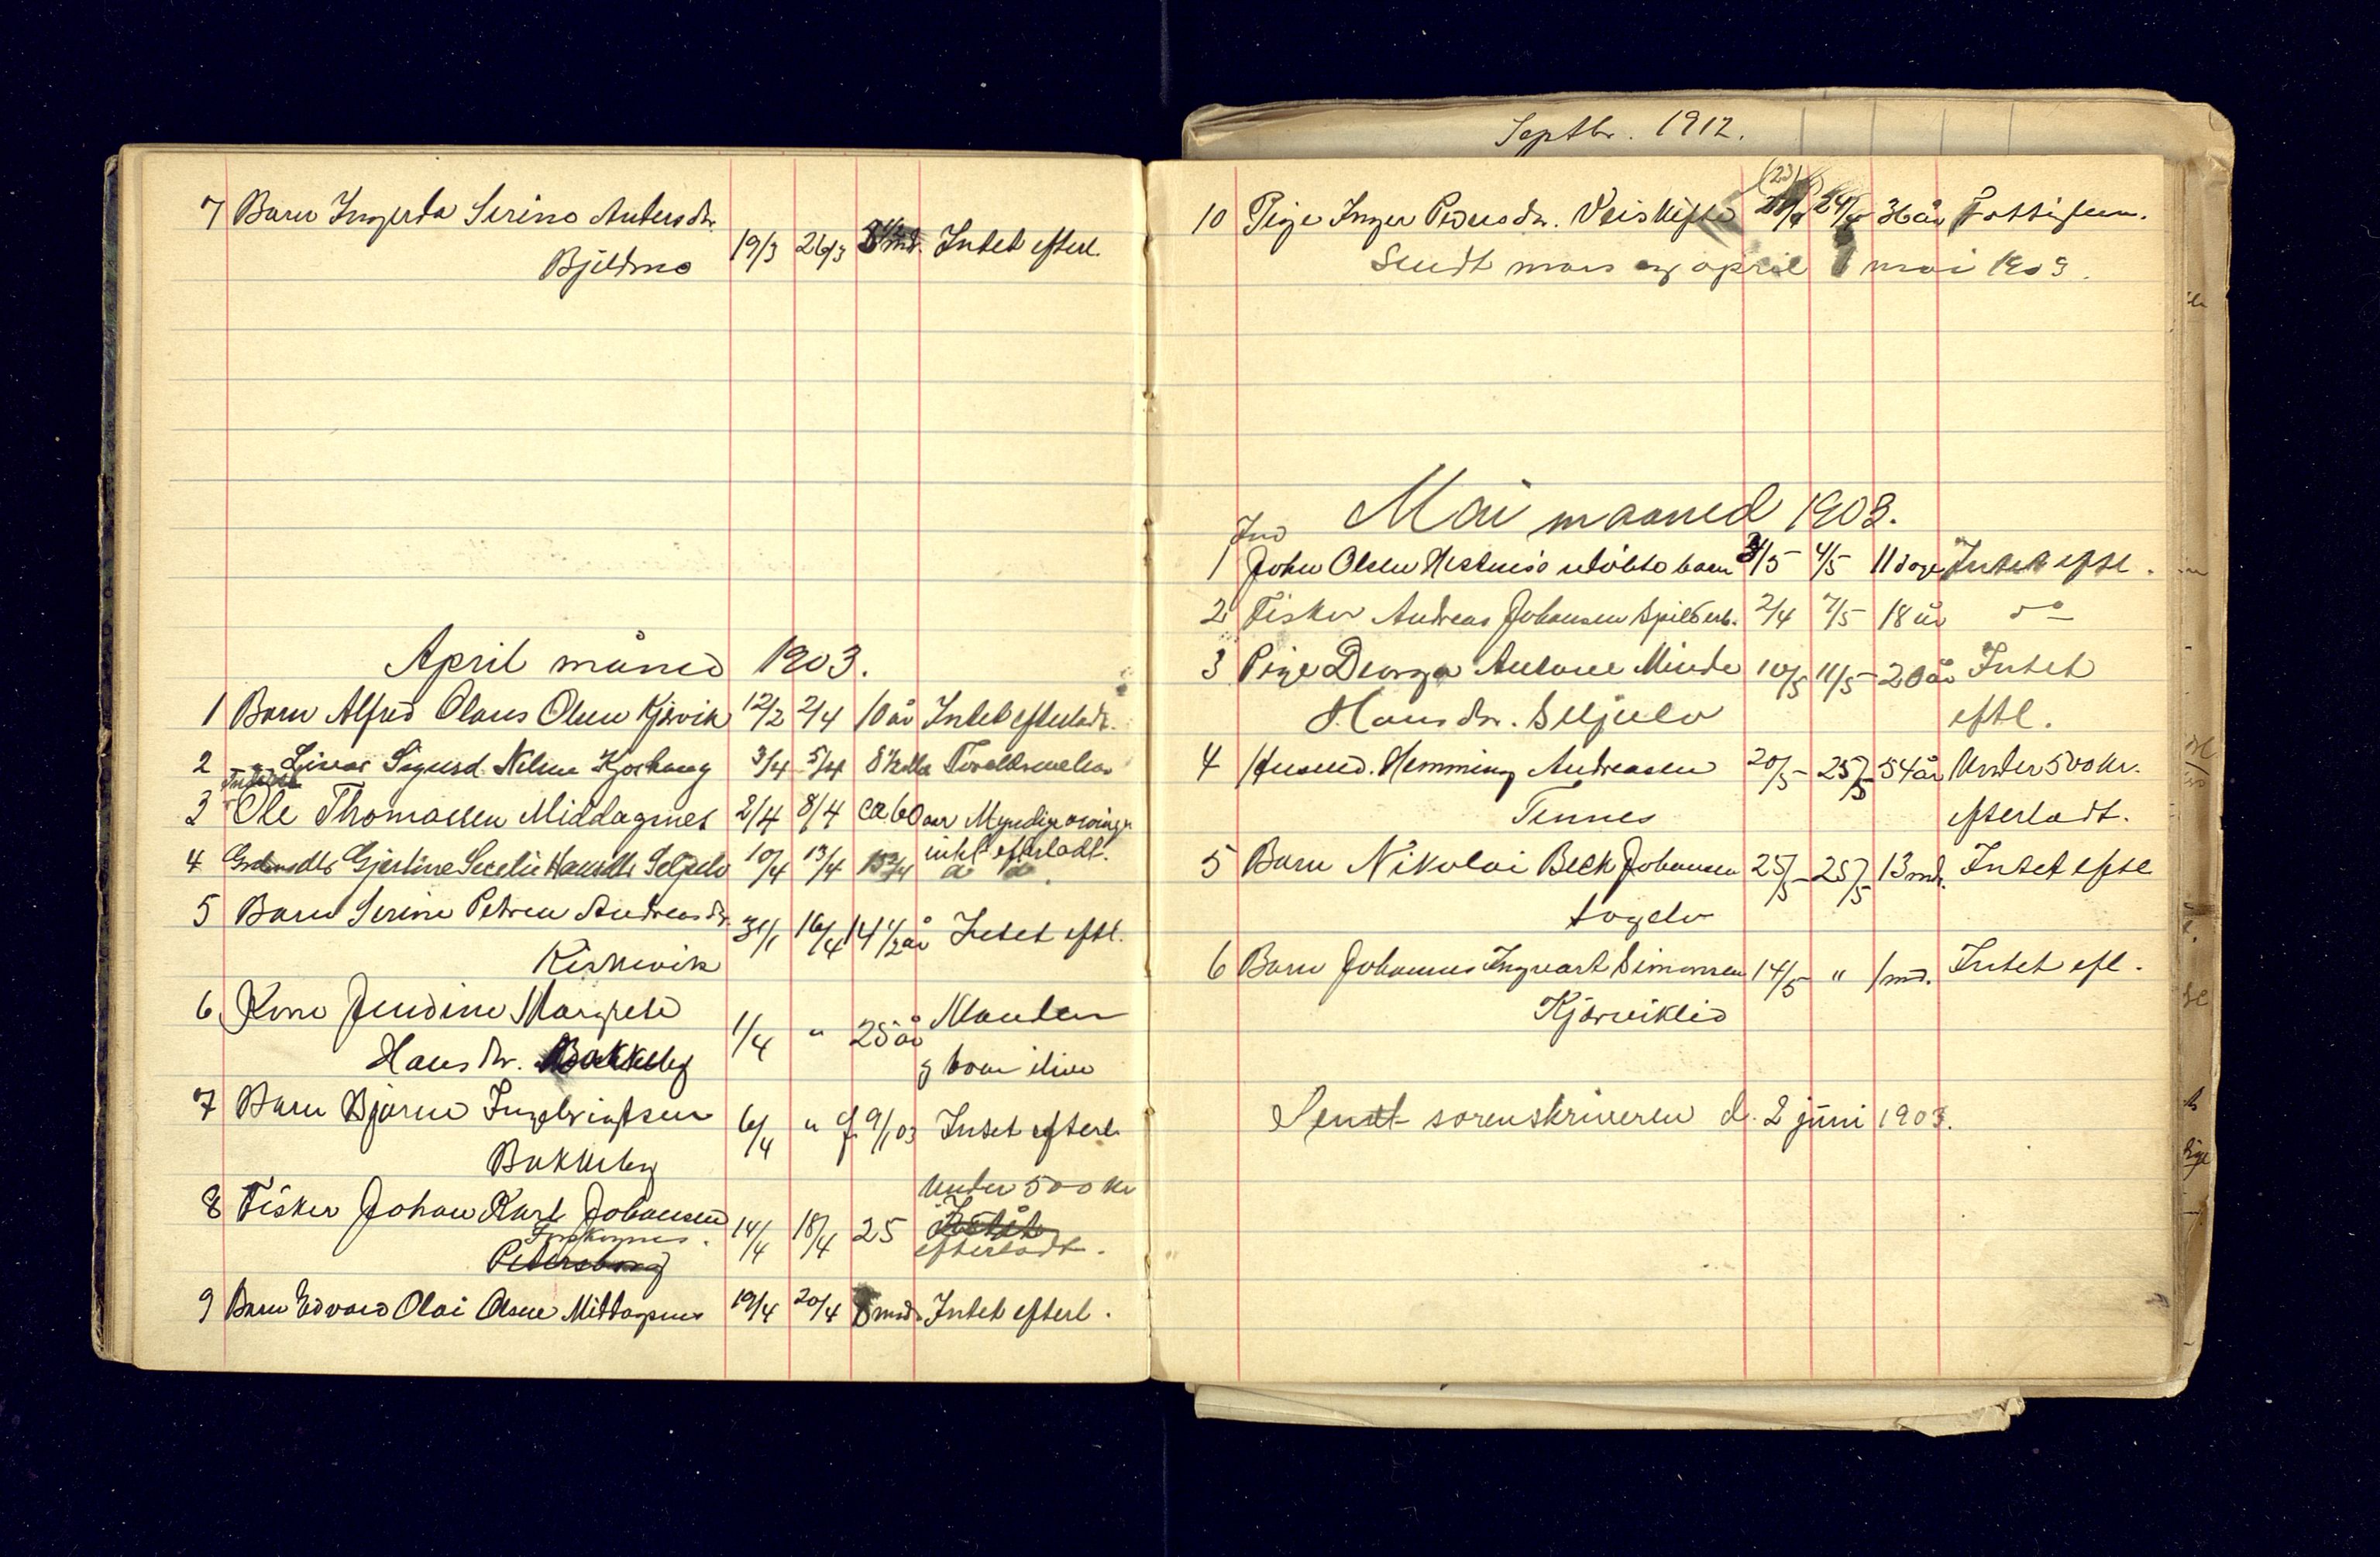 7 Barn Ingerda Serine Andersdr. 19/3 26/3 md. Intet efterl.
Bjeldmo
April måned 1903.
1 Barn Alfred Olaus Olsen Kjærvik 12/2 2/4 10 år Intet efterladt.
2 - " - Einar Sigurd Nilsen 3/4 5/4
3 Ole Thomassen Middagsnes 2/4 8/4 ca. 60 aar Myndige arvinger
intet efterladt.
4 Gjertine Hansdtr Seljelv 10/4 13/4
5 Barn Serine Petrea Andreasdr. 31/1 16/4 14 1/2 år Intet eftl.
6 Kone Jendine Margrete 1/4 " 25 år Manden
Hansdr. Bakkeby g barn ilive
7 Barn Bjarne Ingebrigtsen 6/4 " f 9/1 03 Intet efterl
Bakkeby
Under 500 kr
8 Fisker Johan Karl Johansen 14/4 18/4 25 Intet
efterladt.
Petersborg
9 Barn Edvard Olai Olsen Middagsnes 19/4 20/4 8 md. Intet efterl.
Septbr. 1912.
(23)
10 Pige Inger Pedersdr. 24/4 36 år Fattiglem.
Sendt mars og april mai 1903.
Mai maaned 1903.
Ind
1 Johan Olsen Hestnes udøbte barn 3/5 4/5 11 dage Intet eftl.
2 Fisker Andreas Johansen 2/4 7/5 18 år do
3 Pige Antone Minde 10/5 11/5 20 år Intet
Hansdr. Seljelv eftl.
4 Husmd. Hemming Andreasen 20/5 25/5 54 år Under 500 kr.
Tennes efterladt.
5 Barn Nikolai Beck Johansen 25/5 25/5 13 md. Intet eftl
Sagelv
6 Barn Johannes Ingvart Simonsen 14/5 " 1 md. Intet efl.
Kjærviklid
Sendt sorenskriveren d. 2 juni 1903.